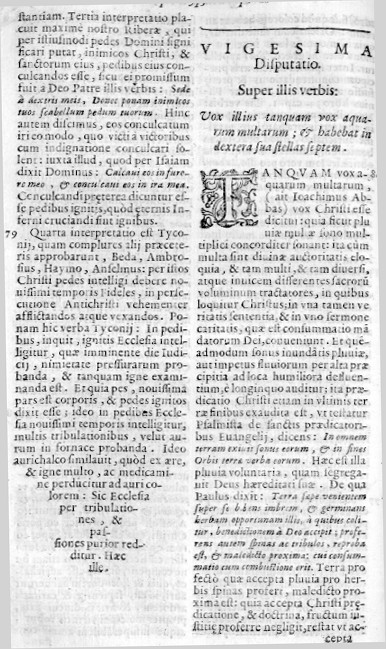 stantiam. Tertia interpretatio pla
cuit maximè nostro Riberæ, qui
per illius modi pedes Domini signi
ficari putat, inimicos Christi, &
sanctorum eius, pedibus eius con-
culcandos esse, sicu ei promissum
fuit à Deo Patre illis verbis: Sede
à dextris meis, Donec ponam inimicos
tuos scabellum pedum tuorum. Hinc
autem discimus, eos conculcatum
iri eo modo, quo victi à victoribus
cum indignatione conculcari so-
lent: iuxta illud, quod per Isaiam
dixit Dominus: Calcaui eos in furo-
re meo, & conculcaui eos in ira mea.
Conculcandi præterea dicuntur es-
se pedibus ignitis, quòd æternis In-
ferni cruciandi sint ignibus.
79 Quarta interpretatio est Tyco-
nij, quam complures alij præcete-
ris approbarunt, Beda, Ambro-
sius, Haymo, Anselmus: per istos
Christi pedes intelligi debere no-
uissimi temporis Fideles, in perse-
cutione Antichristi vehementer
afflictandos atque vexandos. Po-
nam hic verba Tyconij: In pedi-
bus, inquit, ignitis Ecclesia intel-
ligitur, quæ imminente die Iudi-
cij, nimietate pressurarum pro-
banda, & tanquam igne exami-
nanda est. Et quia pes, nouissima
pars est corporis, & pedes ignitos
dixit esse; ideo in pedibus Eccle-
sia nouissimi temporis intelligitur,
multis tribulationibus, velut au-
rum in fornace probanda. Ideo
aurichalco similauit, quòd ex ære,
& igne multo, ac medicami-
ne perducitur ad auri co-
lorem: Sic Ecclesia
per tribulatio-
nes, &
pas-
siones purior red-
ditur. Hæc
ille.
VIGESIMA
Disputatio.
Super illis verbis:
Vox illius tanquam vox aqua-
rum multarum; & habebat in
dextera sua stellas septem.
TANQVAM vox a-
quarum multarum,
(ait Ioachimus Ab-
bas) vox Christi esse
dicitur: quia sicut plu
uiæ mul æ sono mul-
tiplici concorditer sonant: ita cùm
multa sint diuinæ auctoritatis elo-
quia, & tam multi, & tam diuersi,
atque inuicem differentes sacrorũ
voluminum tractatores, in quibus
loquitur Christus, in vna tamen ve
ritatis sententia, & in vno sermone
caritatis, quæ est consummatio mã
datorum Dei, conueniunt. Et que-
admodum sonus inundãtis pluuiæ,
aut impetus fluuiorum per alta præ
cipitia ad loca humiliora defluen-
tium, è longinquo auditur: ita præ-
dicatio Christi etiam in vltimis ter
ræ finibus exaudita est, vt testatur
Psalmista de sanctis prædicatoribus
Euangelij, dicens: In omnem
terram exiuit sonus eorum, & in fines
Orbis terræ verba eorum. Hæc est illa
pluuia voluntaria, quam segrega-
uit Deus hæreditati suæ. De qua
Paulus dixit: Terra sæpe venientem
super se bibens imbrem, & germinans
herbam opportunam illis, à quibus coli-
tur, benedictionem à Deo accipit; profe-
rens autem spinas ac tribulos, reproba
est, & maledicto proxima; cui consum-
matio eum combustione erit. Terra pro
fectò quæ accepta pluuia pro her
bis spinas profert, maledicto pro-
xima est: quia accepta Christi præ
dicatione, & doctrina, fructum iu-
stitiæ proferre negligit, restat vt ac-
cepta